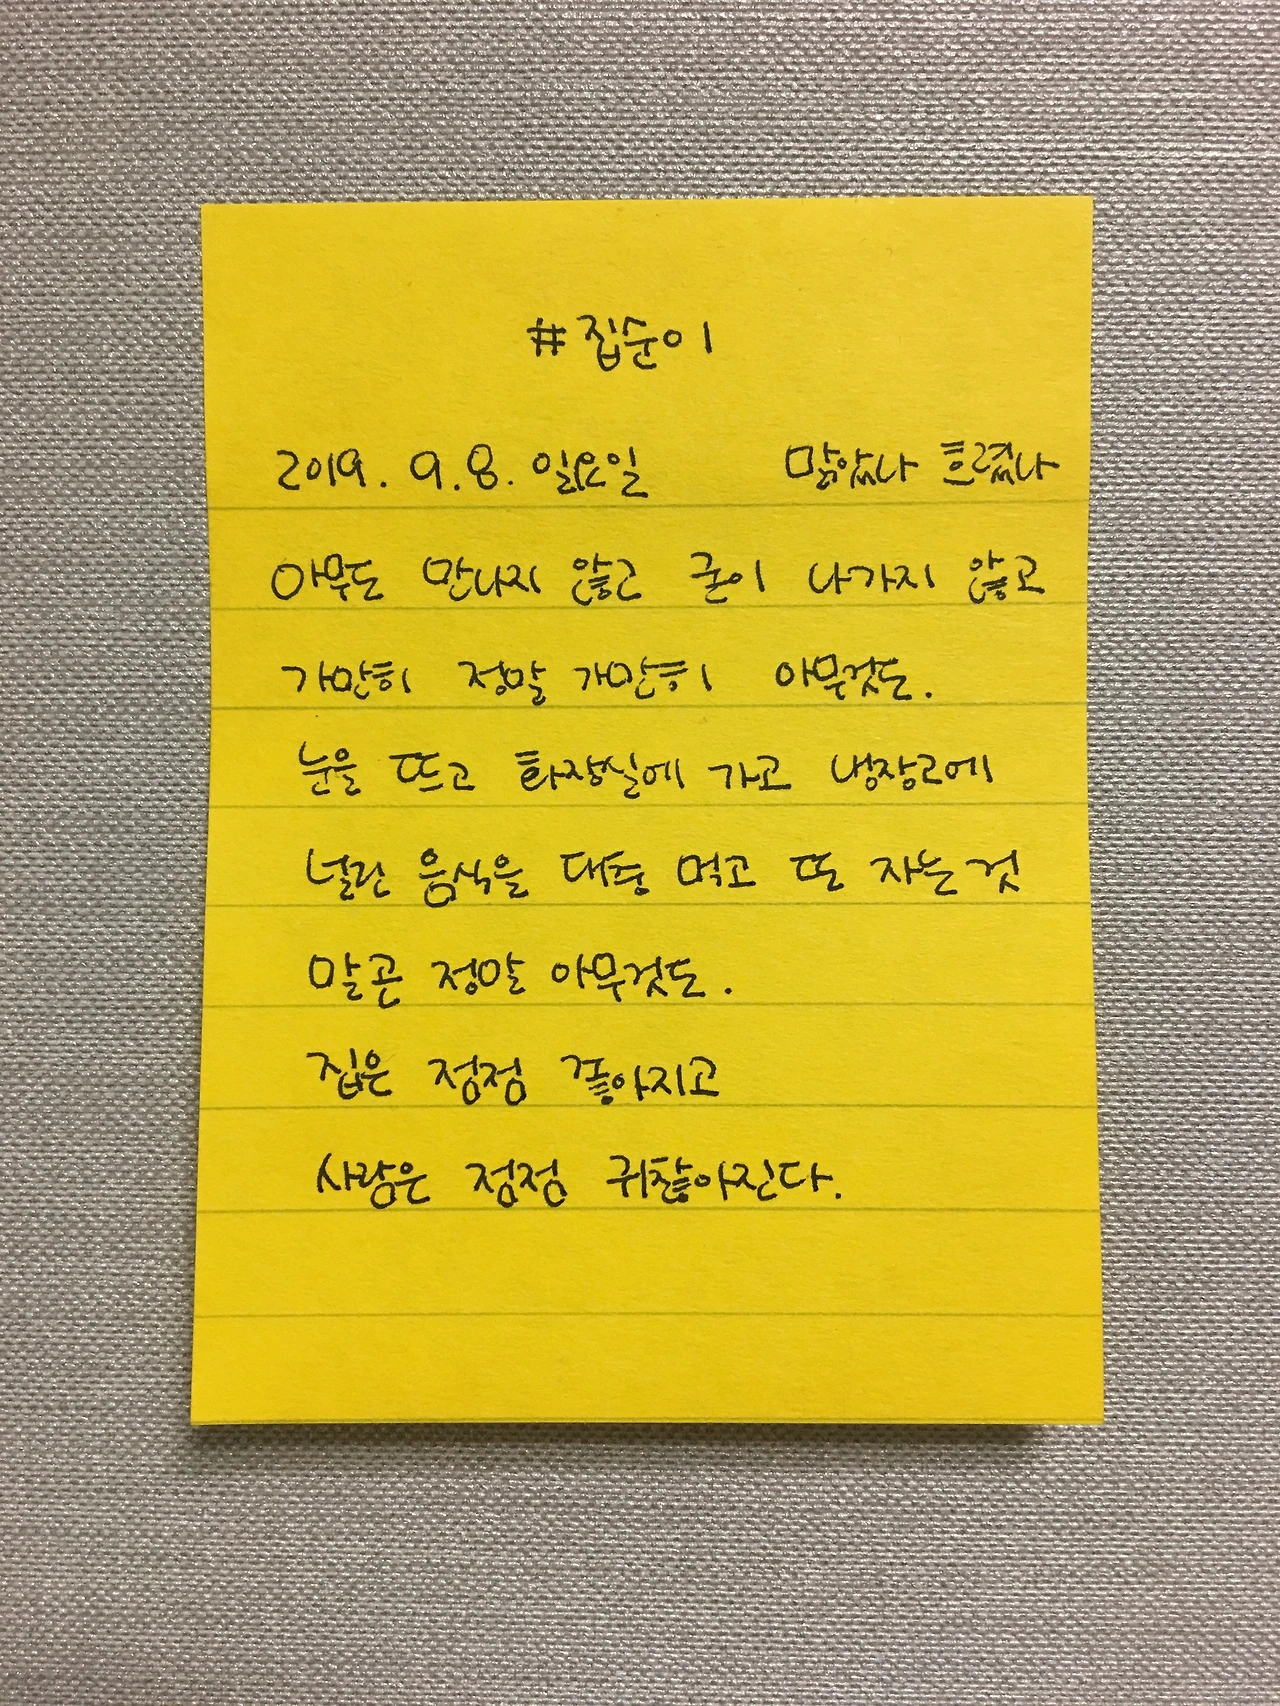 #집순이
2019. 9. 8. 일요일 맑았나 흐렸나
아무도 만나지 않고 굳이 나가지 않고
가만히 정말 가만히 아무것도.
눈을 뜨고 화장실에 가고 냉장고에
널린 음식을 대충 먹고 또 자는 것
말곤 정말 아무것도.
집은 점점 좋아지고
사람은 점점 귀찮아진다.